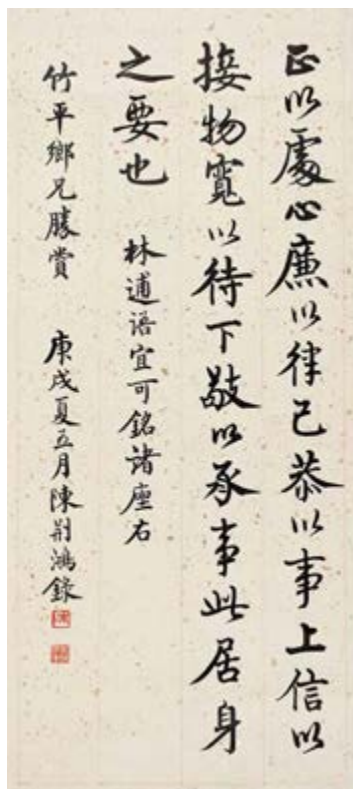 正以處心廉以律己恭以事上信以
接物寬以待下敬以承事此居身
之要也
林逋语宜可銘諸座右
竹平鄉兄勝賞
庚戌夏五月陳荆鴻錄